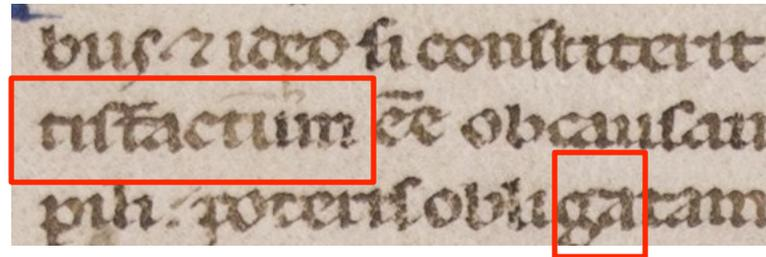 buſ ⁊ ideo ſi conſtiterit
tiſfactum ēē ob cauſam
pili. poteriſ obligatam